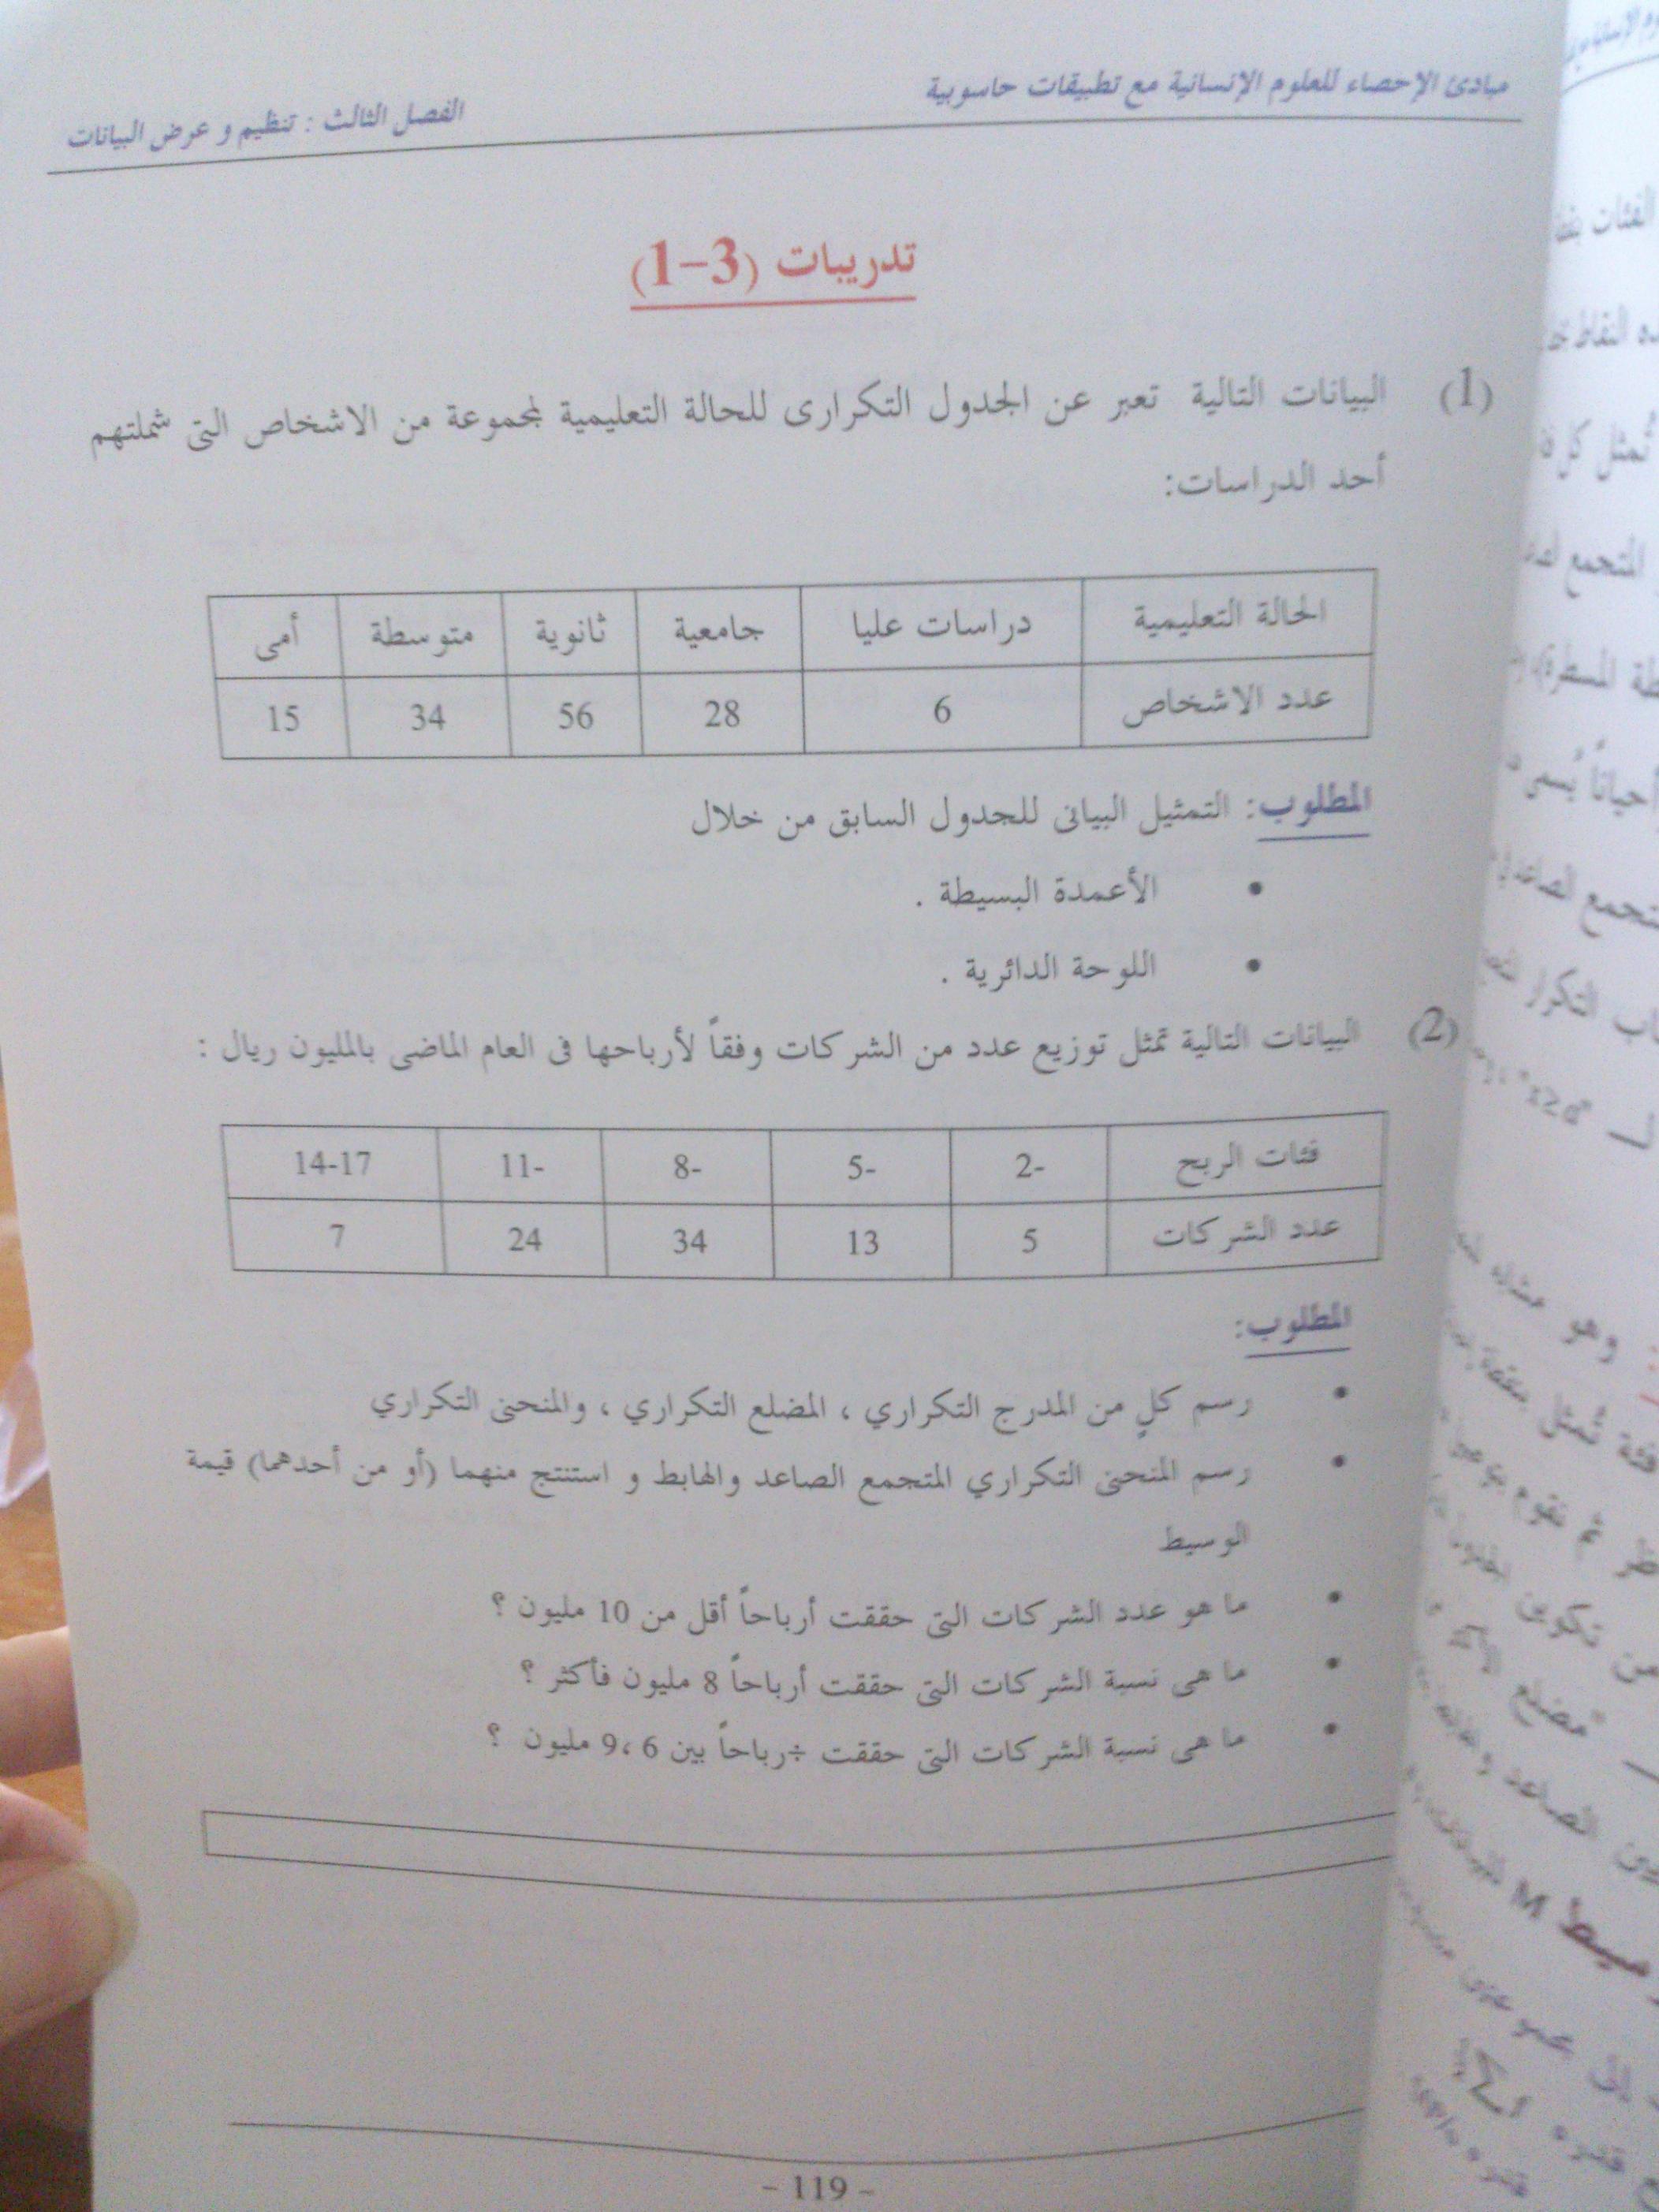 مبادئ الإحصاء للعلوم الإنسانية مع تطبيقات حاسوبية
الفصل الثالث : تنظيم و عرض البيانات
تدريبات (3-1)
(1) البيانات التالية تعبر عن الجدول التكرارى للحالة التعليمية لمجموعة من الاشخاص التى شملتهم
أحد الدراسات:
الحالة التعليمية دراسات عليا جامعية ثانوية متوسطة أمى
عدد الاشخاص 6 28 56 34 15
المطلوب: التمثيل البيانى للجدول السابق من خلال
• الأعمدة البسيطة .
• اللوحة الدائرية .
(2) البيانات التالية تمثل توزيع عدد من الشركات وفقاً لأرباحها فى العام الماضى بالمليون ريال :
فئات الربح 2- 5- 8- 11- 14-17
عدد الشركات 5 13 34 24 7
المطلوب:
• رسم كلٍ من المدرج التكراري ، المضلع التكراري ، والمنحنى التكراري
• رسم المنحنى التكراري المتجمع الصاعد والهابط و استنتج منهما (أو من أحدهما) قيمة
الوسيط
• ما هو عدد الشركات التى حققت أرباحاً أقل من 10 مليون ؟
• ما هى نسبة الشركات التى حققت أرباحاً 8 مليون فأكثر ؟
• ما هى نسبة الشركات التى حققت ÷رباحاً بين 6 ،9 مليون ؟
- 119 -
الفئات
النقاط
تمثل كل
المتجمع
المسطرة
أحياناً يسمى
وهو مشابه
تمثل
نقوم
من تكوين
مضلع
M